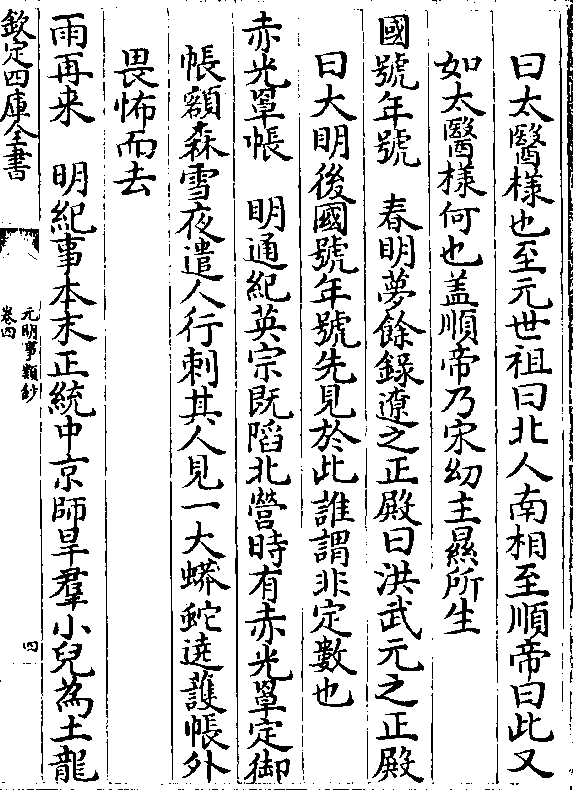 曰太醫様也至元世祖曰北人南相至順帝曰此又
如太醫様何也盖順帝乃宋幼主㬎所生
國號年號　春明夢餘錄遼之正殿曰洪武元之正殿
曰大明後國號年號先見於此誰謂非定數也
赤光罩帳　明通紀英宗既䧟北營時有赤光罩定御
帳額森雪夜遣人行刺其人見一大蟒蛇遶護帳外
畏怖而去
雨再来　明紀事本末正統中京師旱羣小兒為土龍
欽定四庫全書
元明事類鈔
卷四
四